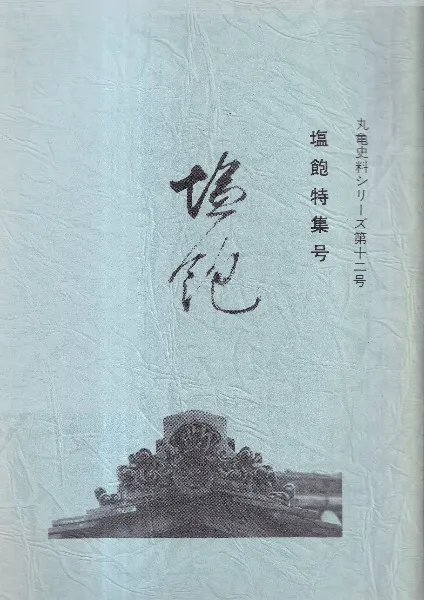 丸亀史料シリーズ第十二号
塩飽特集号
塩飽